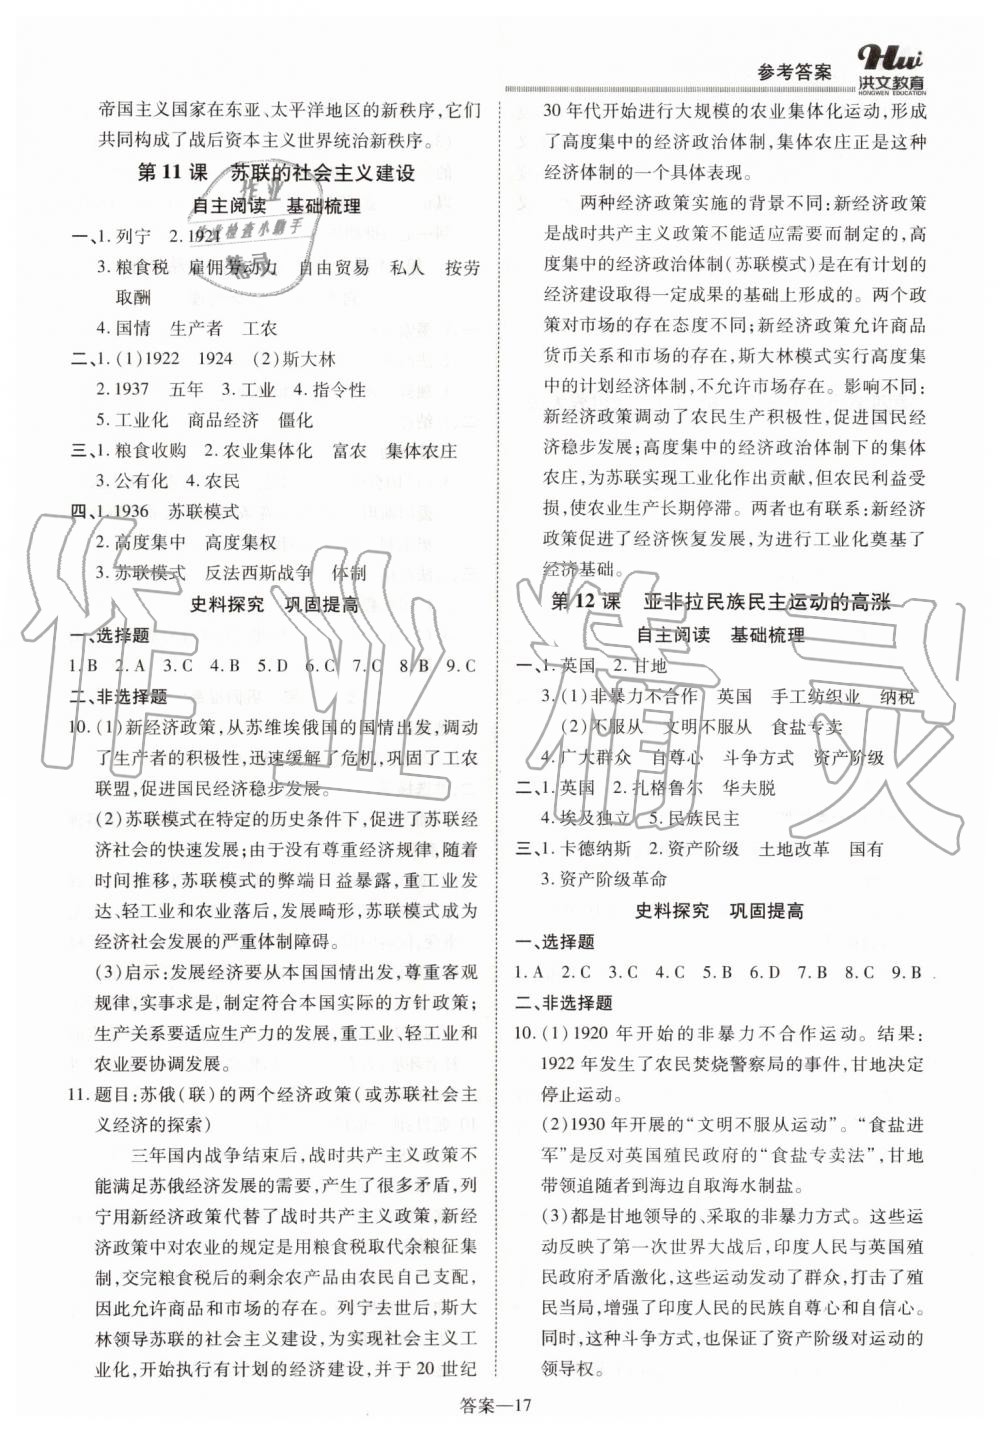 参考答案
Hwi
洪文教育
HONGWEN EDUCATION
帝国主义国家在东亚、太平洋地区的新秩序,它们
共同构成了战后资本主义世界统治新秩序。
第11课 苏联的社会主义建设
自主阅读 基础梳理
一、1.列宁 2.1921
3.粮食税 雇佣劳动力 自由贸易 私人 按劳
取酬
4.国情 生产者 工农
二、1.(1)1922 1924 (2)斯大林
2.1937 五年 3.工业 4.指令性
5.工业化 商品经济 僵化
三、1.粮食收购 2.农业集体化 富农 集体农庄
3.公有化 4.农民
四、1.1936 苏联模式
2.高度集中 高度集权
3.苏联模式 反法西斯战争 体制
史料探究 巩固提高
一、选择题
1.B 2.A 3.C 4.B 5.D 6.C 7.C 8.B 9.C
二、非选择题
10.(1)新经济政策,从苏维埃俄国的国情出发,调动
了生产者的积极性,迅速缓解了危机,巩固了工农
联盟,促进国民经济稳步发展。
(2)苏联模式在特定的历史条件下,促进了苏联经
济社会的快速发展;由于没有尊重经济规律,随着
时间推移,苏联模式的弊端日益暴露,重工业发
达、轻工业和农业落后,发展畸形,苏联模式成为
经济社会发展的严重体制障碍。
(3)启示:发展经济要从本国国情出发,尊重客观
规律,实事求是,制定符合本国实际的方针政策;
生产关系要适应生产力的发展,重工业、轻工业和
农业要协调发展。
11.题目:苏俄(联)的两个经济政策(或苏联社会主
义经济的探索)
三年国内战争结束后,战时共产主义政策不
能满足苏俄经济发展的需要,产生了很多矛盾,列
宁用新经济政策代替了战时共产主义政策,新经
济政策中对农业的规定是用粮食税取代余粮征集
制,交完粮食税后的剩余农产品由农民自己支配,
因此允许商品和市场的存在。列宁去世后,斯大
林领导苏联的社会主义建设,为实现社会主义工
业化,开始执行有计划的经济建设,并于20世纪
30年代开始进行大规模的农业集体化运动,形成
了高度集中的经济政治体制,集体农庄正是这一
经济体制的一个具体表现。
两种经济政策实施的背景不同:新经济政策
是战时共产主义政策不能适应需要而制定的,高
度集中的经济政治体制(苏联模式)是在有计划的
经济建设取得一定成果的基础上形成的。两个政
策对市场的存在态度不同:新经济政策允许商品
货币关系和市场的存在,斯大林模式实行高度集
中的计划经济体制,不允许市场存在。影响不同:
新经济政策调动了农民生产积极性,促进国民经
济稳步发展;高度集中的经济政治体制下的集体
农庄,为苏联实现工业化作出贡献,但农民利益受
损,使农业生产长期停滞。两者也有联系:新经济
政策促进了经济恢复发展,为进行工业化奠基了
经济基础。
第12课 亚非拉民族民主运动的高涨
自主阅读 基础梳理
一、1.英国 2.甘地
3.(1)非暴力不合作 英国 手工纺织业 纳税
(2)不服从 文明不服从 食盐专卖
4.广大群众 自尊心 斗争方式 资产阶级
二、1.英国 2.扎格鲁尔 华夫脱
4.埃及独立 5.民族民主
三、1.卡德纳斯 2.资产阶级 土地改革 国有
3.资产阶级革命
史料探究 巩固提高
一、选择题
1.A 2.C 3.C 4.C 5.B 6.D 7.B 8.C 9.B
二、非选择题
10.(1)1920年开始的非暴力不合作运动。结果:
1922年发生了农民焚烧警察局的事件,甘地决定
停止运动。
(2)1930年开展的“文明不服从运动”。“食盐进
军”是反对英国殖民政府的“食盐专卖法”,甘地
带领追随者到海边自取海水制盐。
(3)都是甘地领导的、采取的非暴力方式。这些运
动发生于第一次世界大战后,印度人民与英国殖
民政府矛盾激化,这些运动发动了群众,打击了殖
民当局,增强了印度人民的民族自尊心和自信心。
同时,这种斗争方式,也保证了资产阶级对运动的
领导权。
答案—17
作业
作业检查小助手
精灵
作业精灵